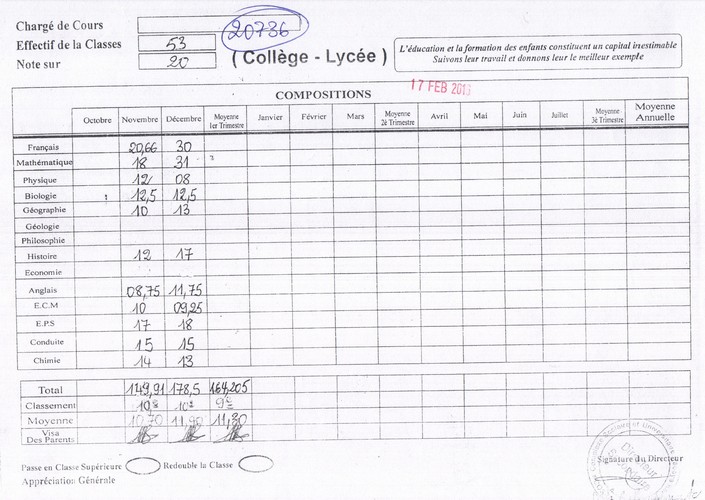 Chargé de Cours
20736
Effectif de la Classes 53
Note sur 20
( Collège - Lycée )
L'éducation et la formation des enfants constituent un capital inestimable
Suivons leur travail et donnons leur le meilleur exemple
COMPOSITIONS
17 FEB
Octobre Novembre Décembre Moyenne 1er Trimestre Janvier Février Mars Moyenne 2è Trimestre Avril Mai Juin Juillet Moyenne 3è Trimestre Moyenne Annuelle
Français 20,66 30
Mathématique 18 31
Physique 12 08
Biologie 12,5 12,5
Géographie 10 13
Géologie
Philosophie
Histoire 12 17
Economie
Anglais 08,75 11,75
E.C.M 10 09,25
E.P.S 17 18
Conduite 15 15
Chimie 14 13
Total 149,91 178,5 164,205
Classement 10è 10è 9è
Moyenne 10,70 11,90 11,30
Visa Des Parents
Passe en Classe Supérieure Redouble la Classe
Appréciation Générale
Signature du Directeur